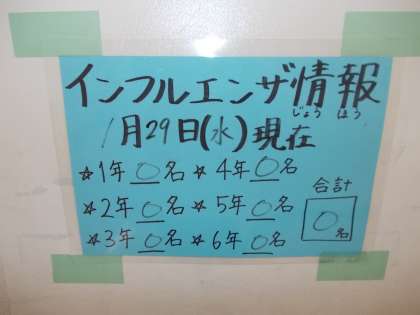 インフルエンザ情報
じょう ほう
1月29日(水)現在
☆1年 0名 ☆4年 0名
☆2年 0名 ☆5年 0名
☆3年 0名 ☆6年 0名
合計
0名